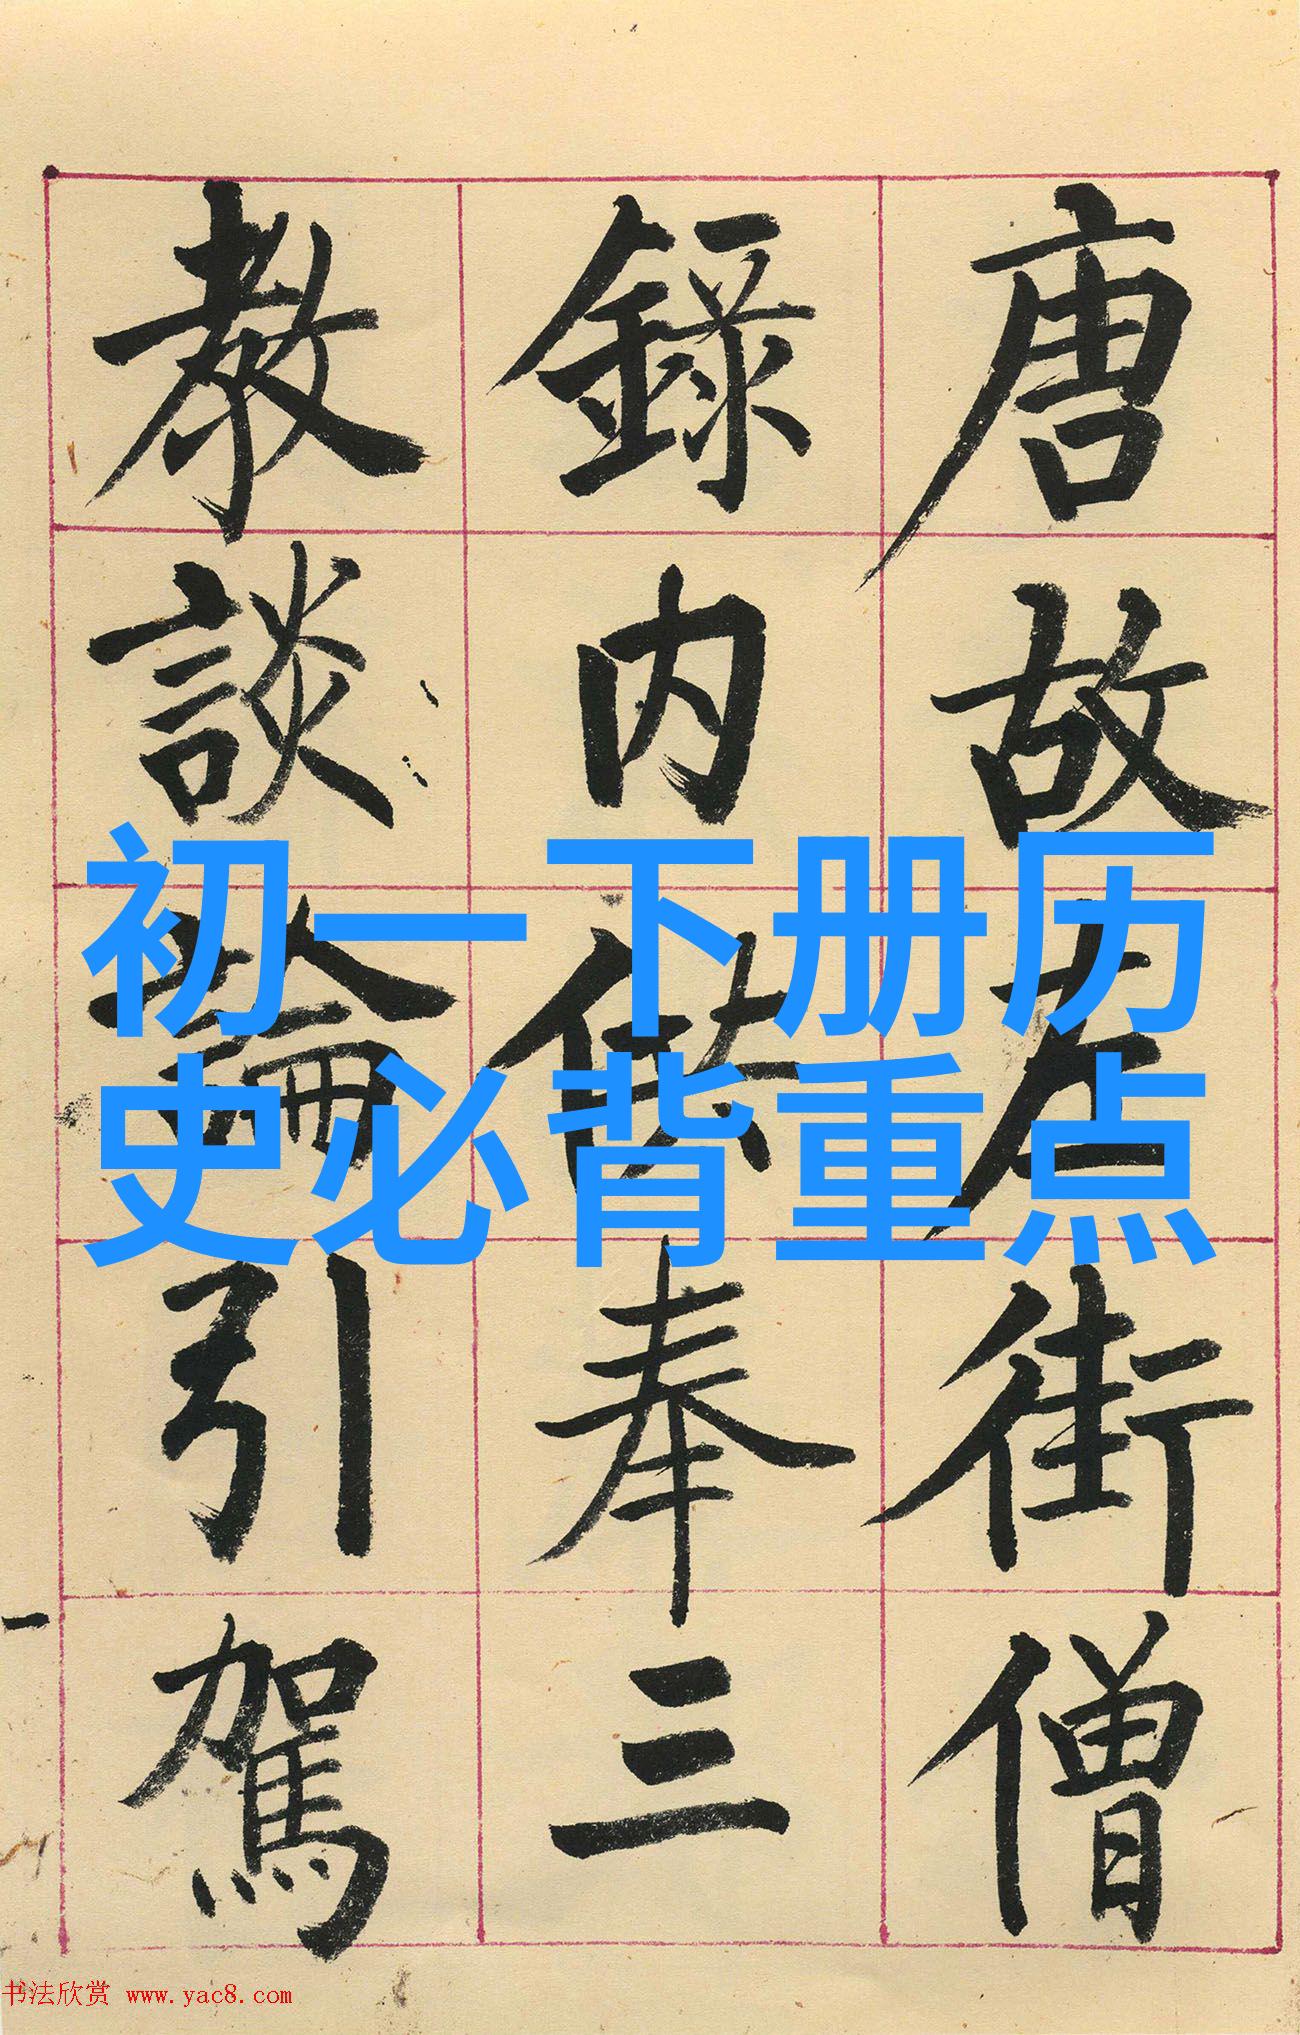 唐故左街僧
錄内供奉三
教談論引駕
初一下册历
史必背重点
书法欣赏 www.yac8.com